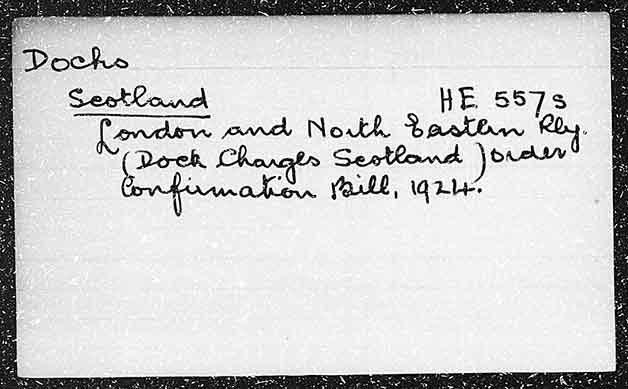 Docks
Scotland HE 557s
London and North Eastern Rly.
(Dock Charges Scotland) Order
Confirmation Bill, 1924.